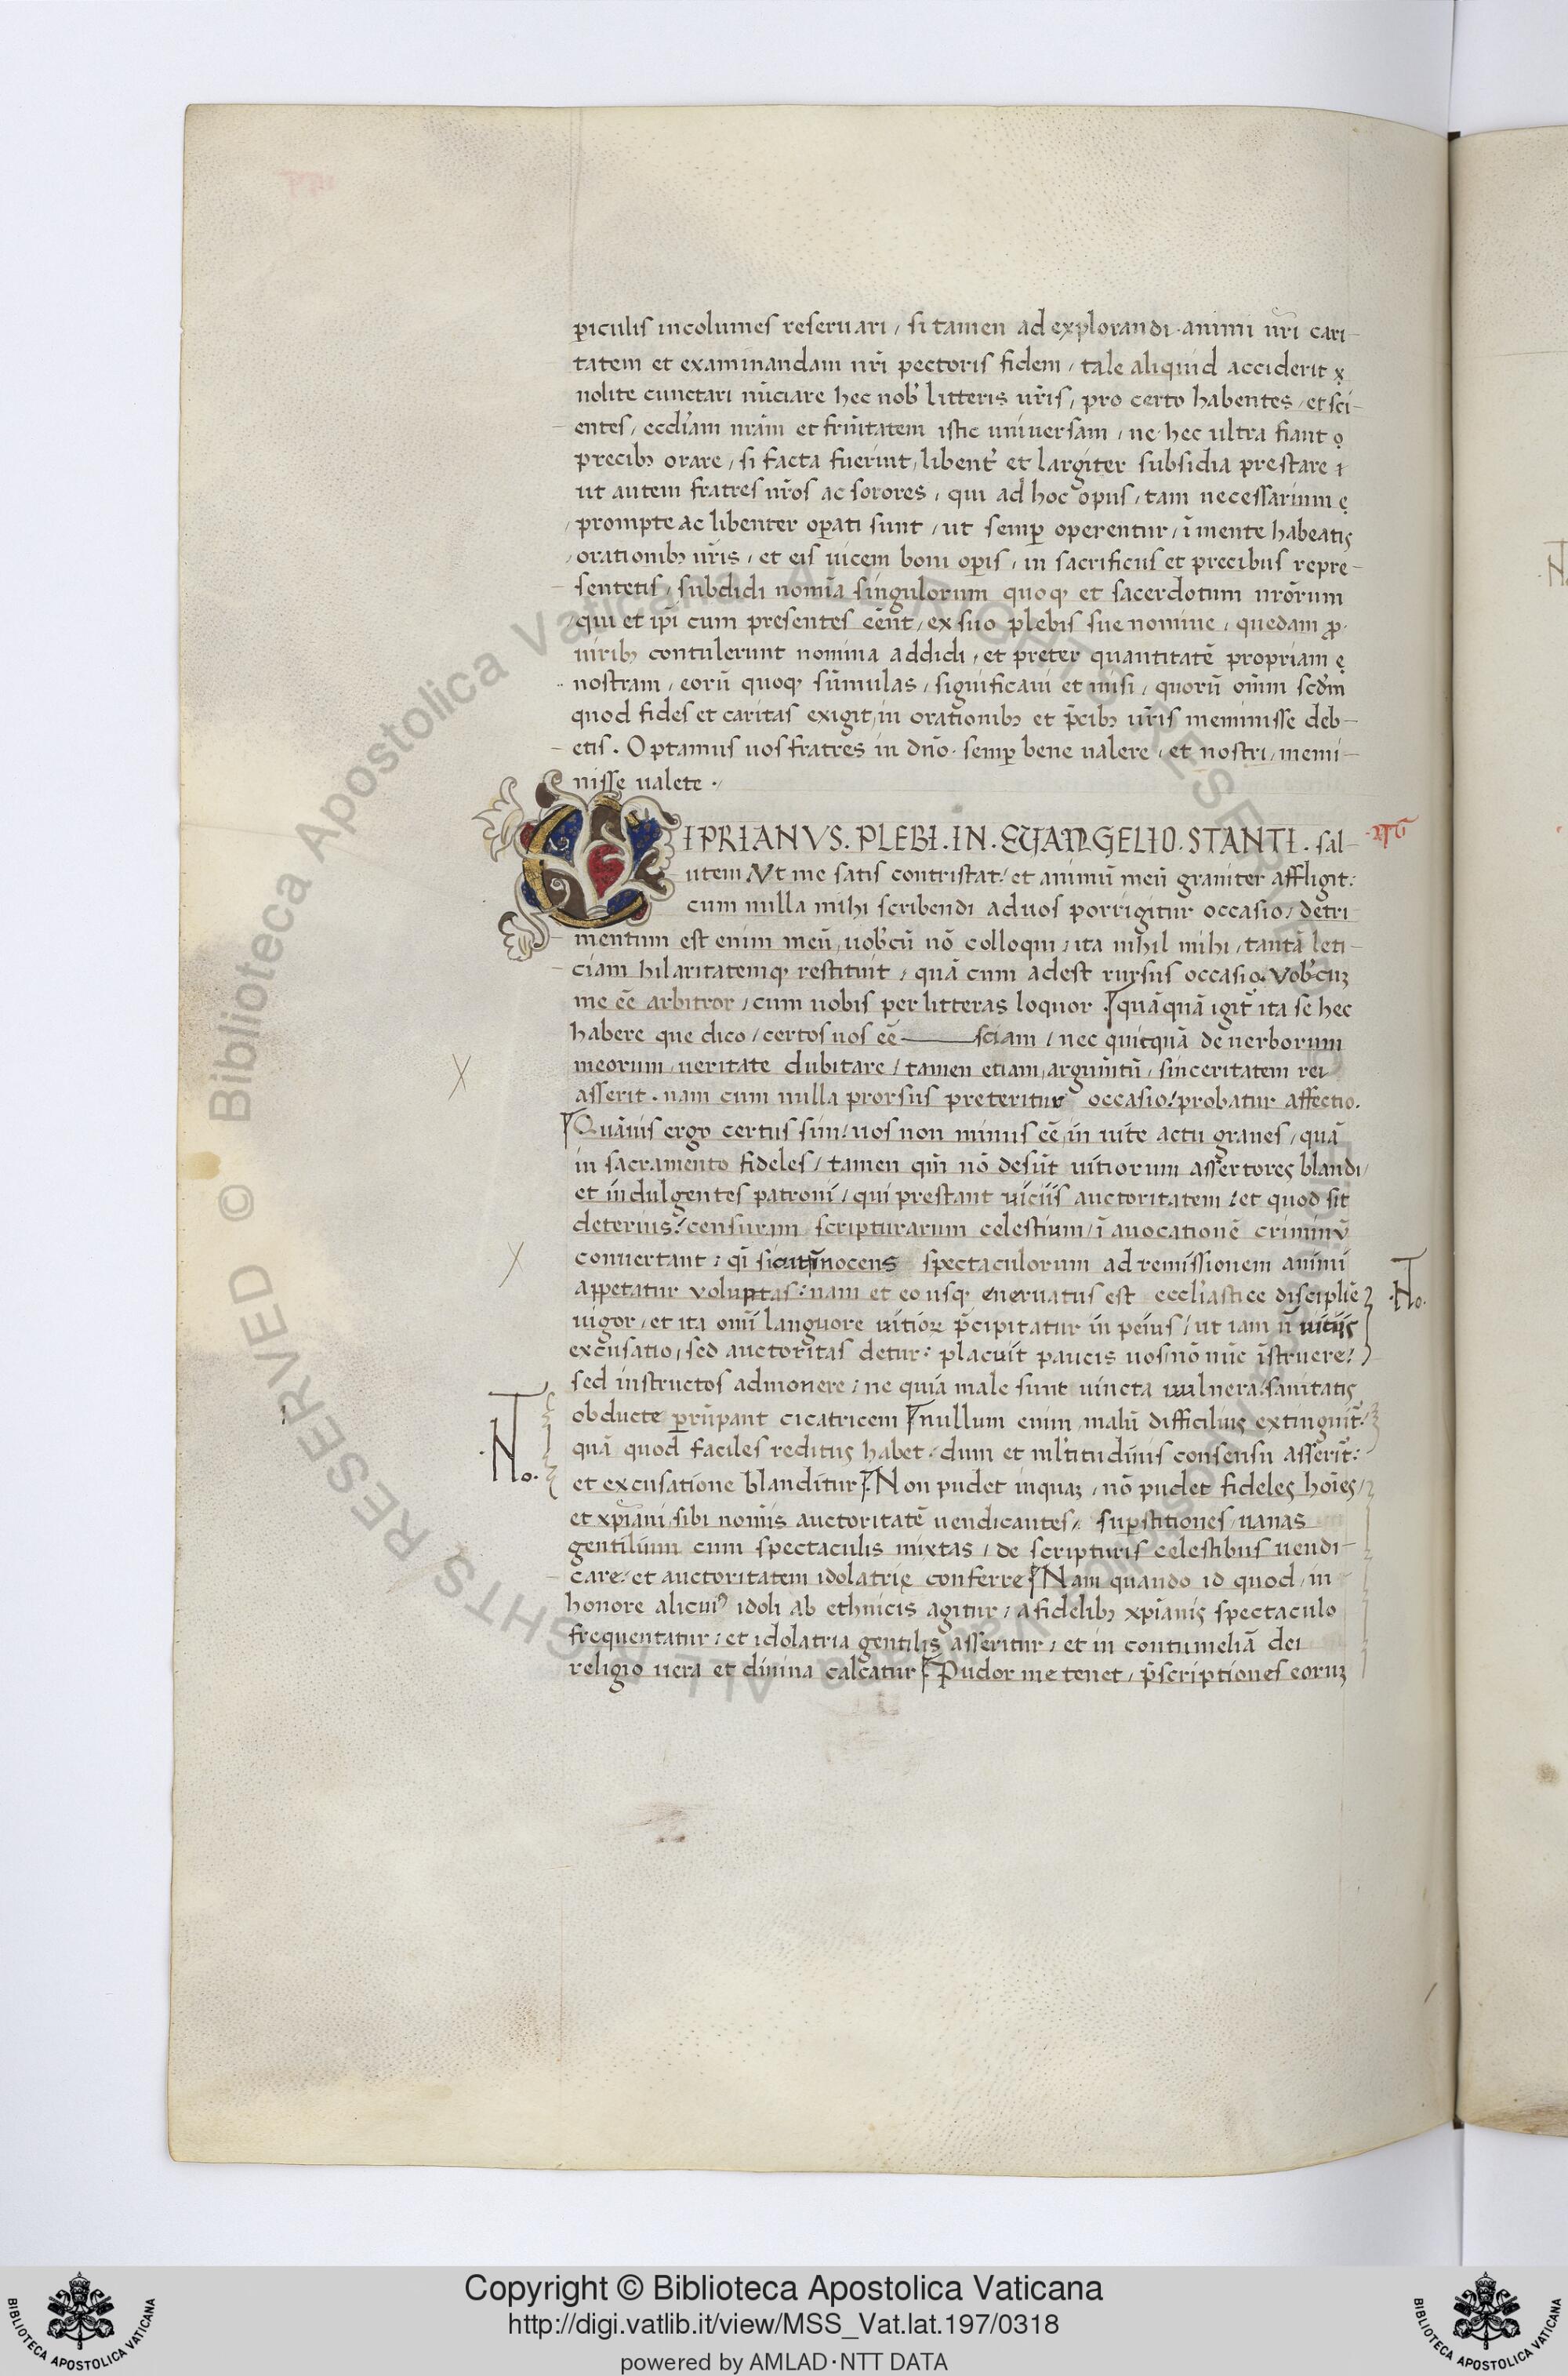 p̱iculis incolumes reseruari / si tamen ad explorandi · animi ur̃i cari-
tatem et examinandam nr̃i pectoris fidem / tale aliquid acciderit
nolite cunctari nũciare hec nob̕ litteris ur̃is / pro certo habentes / et sci-
entes / eccl̕iam nr̃am et fr̃nitatem istic uniuersam / ne hec ultra fiant
precib; orare / si facta fuerint / libent̕ et largiter subsidia prestare
ut autem fratres nr̃os ac sorores / qui ad hoc opus / tam necessarium
prompte ac libenter op̱ati sunt / ut semp̱ operentur / ĩ mente habeatis
orationib; ur̃is / et eis uicem boni op̱is / in sacrificiis et precibus repre-
sentetis / subdidi nomĩa singulorum quoq; et sacerdotum nr̃orum
qui et ip̃i cum presentes eẽnt / ex suo plebis sue nomine / quedam ꝓ
uirib; contulerunt nomina addidi / et preter quantitatẽ propriam
nostram / eorũ quoq; sũmulas / significaui et misi / quorũ oĩum scd̃m
quod fides et caritas exigit / in orationib; et p̃cib; ur̃is meminisse deb-
etis . Optamus uos fratres in dño semp̱ bene ualere / et nostri / memi-
nisse ualete ·/
CIPRIANVS . PLEBI . IN . EUANGELIO . STANTI . sal-
utem Vt me satis contristat / et animũ meũ grauiter affligit :
cum nulla mihi scribendi ad uos porrigitur occasio / detri-
mentum est enim meũ / uob̕cũ nõ colloqui / ita nihil mihi / tantã leti-
ciam hilaritatemq; restituit / quã cum adest rursus occasio . Vob̕cuȝ
me eẽ arbitror / cum uobis per litteras loquor . quãquã igit̕ ita se hec
habere que dico / certos uos eẽ sciam / nec quicquã de uerborum
meorum ueritate dubitare / tamen etiam argum̃tũ / sinceritatem rei
asserit . nam cum nulla prorsus preteritur occasio / probatur affectio .
Quãuis ergo certus sim / uos non minus eẽ in uite actu graues / quã
in sacramento fideles / tamen qm̃ nõ desũt uitiorum assertores blandi /
et indulgentes patroni / qui prestant uiciis auctoritatem / et quod sit
deterius / censuram scripturarum celestium / ĩ auocationẽ criminũ
conuertant : q̃i sicut innocens spectaculorum ad remissionem animi
appetatur voluptas : nam et eo usq; eneruatus est eccl̕iastice disciplĩe
uigor / et ita om̃i languore uitioꝝ p̃cipitatur in peius / ut iam ñ uitiis
excusatio / sed auctoritas detur : placuit paucis uos nõ nũc ĩstruere /
sed instructos admonere : ne quia male sunt uincta uulnera / sanitatis
obducte p̱rũpant cicatricem nullum enim malũ difficilius extinguit̕
quã quod faciles reditus habet / dum et ml̕titudinis consensu asserit̕ :
et excusatione blanditur . Non pudet inquaȝ / nõ pudet fideles hoĩes /
et xp̃iani sibi nomĩs auctoritatẽ uendicantes / sup̱stitiones uanas
gentilium cum spectaculis mixtas / de scripturis celestibus uendi-
care / et auctoritatem idolatrię conferre Nam quando id quod in
honore alicui9 idoli ab ethnicis agitur / a fidelib; xp̃ianis spectaculo
frequentatur / et idolatria gentilis asseritur / et in contumeliã dei
religio uera et diuina calcatur . Pudor me tenet / p̃scriptiones eoruȝ
No.
No.
Copyright © Biblioteca Apostolica Vaticana
http://digi.vatlib.it/view/MSS_Vat.lat.197/0318
powered by AMLAD·NTT DATA
BIBLIOTECA APOSTOLICA VATICANA
BIBLIOTECA APOSTOLICA VATICANA
© Biblioteca Apostolica Vaticana ALL RIGHTS RESERVED